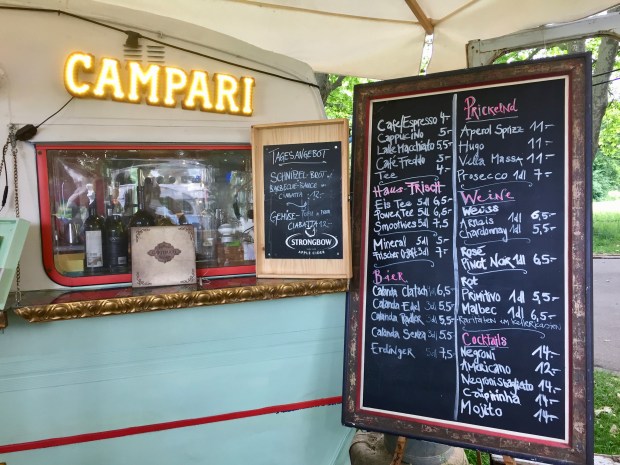 CAMPARI
TAGESANGEBOT
SCHNITZEL-BROT
BARBECUE-
CIABATTA 12.-
GEMÜSE-
CIABATTA 12.-
STRONGBOW
APPLE CIDER
Café/Espresso 4-
Cappuccino 5-
Latte Macchiato 5,5-
Café Freddo 5-
Tee 4-
Haus-Frisch
Eis Tee 5dl 6,5-
Power Tee 5dl 6,5-
Smoothies 5dl 7,5-
Mineral 5dl
Bier
Calanda 5dl 6,5-
Calanda Edel 5dl
Calanda Radler 5dl 5,5
Calanda Senza 5dl 5,5
Erdinger 5dl 7,5
Prickelnd
Aperol Sprizz 11-
Hugo 11-
Villa Massa 11-
Prosecco 1dl 7-
Weine
Weiss
Arneis 1dl 6,5-
Chardonnay 1dl 5,5-
Rosé
Pinot Noir 1dl 6,5-
Rot
Primitivo 1dl 5,5-
Malbec 1dl 6,5-
Raritäten im Weinkasten
Cocktails
Negroni 14-
Americano 12-
Negroni Sbagliato 14-
Caipirinha 14-
Mojito 14-